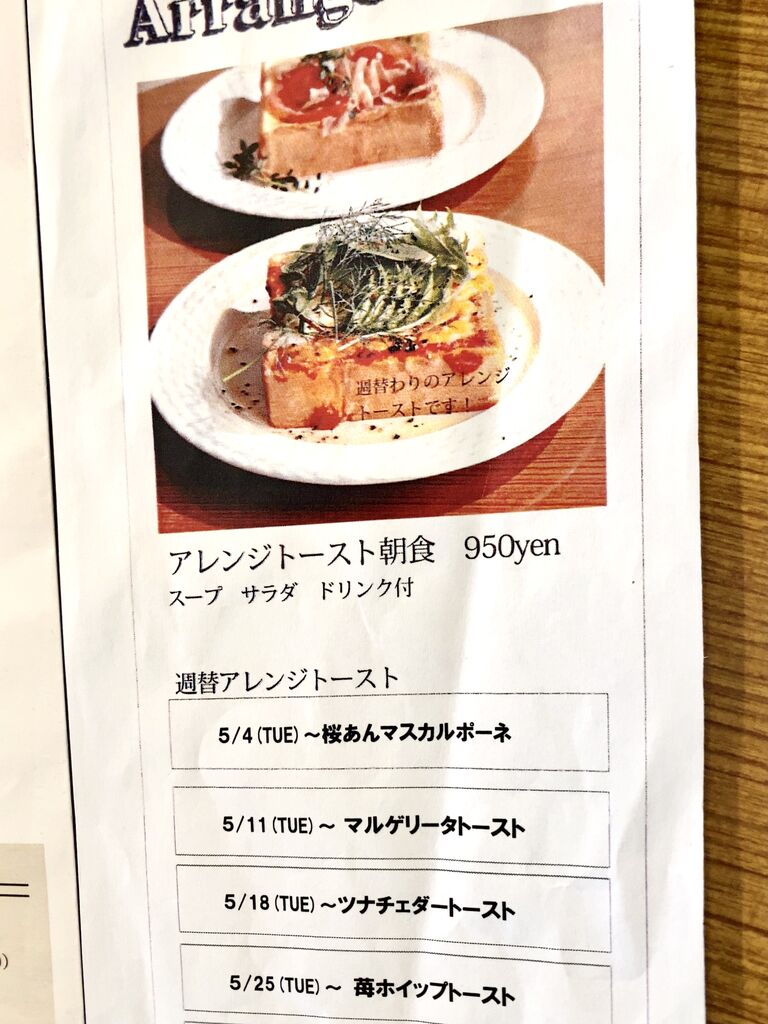 週替わりのアレンジ
トーストです！
アレンジトースト朝食　950yen
スープ　サラダ　ドリンク付
週替アレンジトースト
5/4(TUE)～桜あんマスカルポーネ
5/11(TUE)～ マルゲリータトースト
5/18(TUE)～ツナチェダートースト
5/25(TUE)～ 苺ホイップトースト